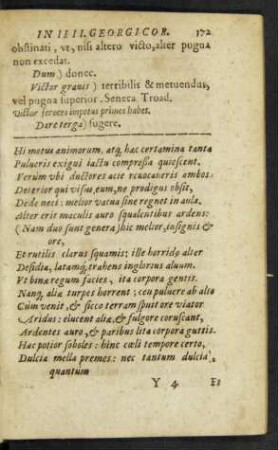 IN IIII. GEORGICOR. 172
obstinati, vt, nisi altero victo, alter pugna
non excedat.
Dum) donec.
Victor grauis) terribilis & metuendus,
vel pugna superior. Seneca Troad.
Victor feroces impetus primos habet.
Dare terga) fugere.
Hi motus animorum, atq, hæc certamina tanta
Pulueris exigui iactu compressa quiescent.
Verùm vbi ductores acie reuocaueris ambos:
Deterior qui visus, eum, ne prodigus obsit,
Dede neci: melior vacua sine regnet in aula.
Alter erit maculis auro squalentibus ardens:
(Nam duo sunt genera) hic melior, insignis &
ore,
Et rutilis clarus squamis: ille horridus alter
Desidia, latamq, trahens inglorius aluum.
Vt binæ regum facies, ita corpora gentis.
Namq, aliæ turpes horrent: ceu puluere ab alto
Cùm venit, & sicco terram spuit ore viator
Aridus: elucent aliæ, & fulgore coruscant,
Ardentes auro, & paribus lita corpora guttis.
Hæc potior soboles: hinc cæli tempore certo,
Dulcia mella premes: nec tantum dulcia,
quantum
Y 4 Et